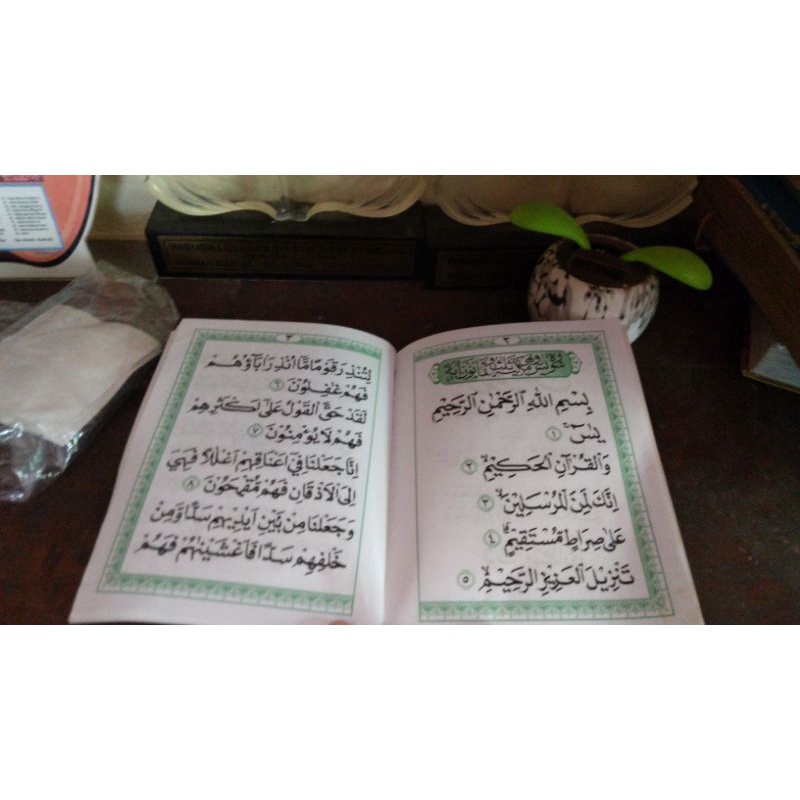 ٢
بِسْمِ اللهِ الرَّحْمٰنِ الرَّحِيْمِ
يٰسۤ ۚ ١
وَالْقُرْآنِ الْحَكِيْمِ ۙ ٢
اِنَّكَ لَمِنَ الْمُرْسَلِيْنَ ۙ ٣
عَلٰى صِرَاطٍ مُسْتَقِيْمٍ ۗ ٤
تَنْزِيْلَ الْعَزِيْزِ الرَّحِيْمِ ۙ ٥
٣
لِتُنْذِرَ قَوْمًا مَّا اُنْذِرَ اٰبَاؤُهُمْ
فَهُمْ غٰفِلُوْنَ ٦
لَقَدْ حَقَّ الْقَوْلُ عَلٰى اَكْثَرِهِمْ
فَهُمْ لَا يُؤْمِنُوْنَ ٧
اِنَّا جَعَلْنَا فِيْ اَعْنَاقِهِمْ اَغْلٰلًا فَهِيَ
اِلَى الْاَذْقَانِ فَهُمْ مُقْمَحُوْنَ ٨
وَجَعَلْنَا مِنْ بَيْنِ اَيْدِيْهِمْ سَدًّا وَّمِنْ
خَلْفِهِمْ سَدًّا فَاَغْشَيْنٰهُمْ فَهُمْ